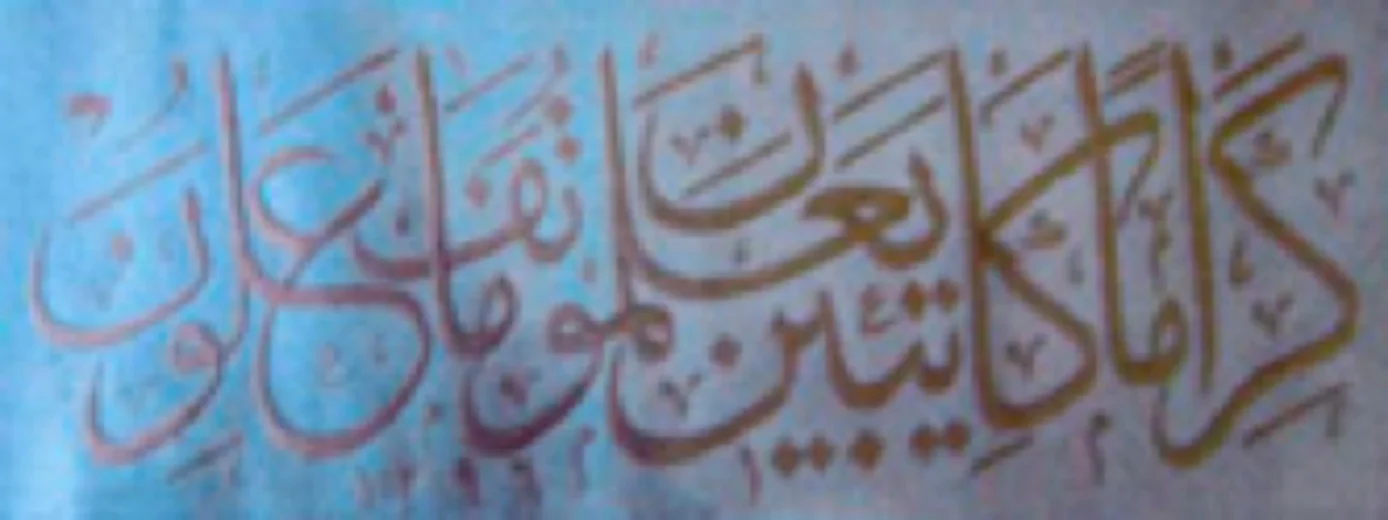 كِرَامًا كَاتِبِينَ يَعْلَمُونَ مَا تَفْعَلُونَ